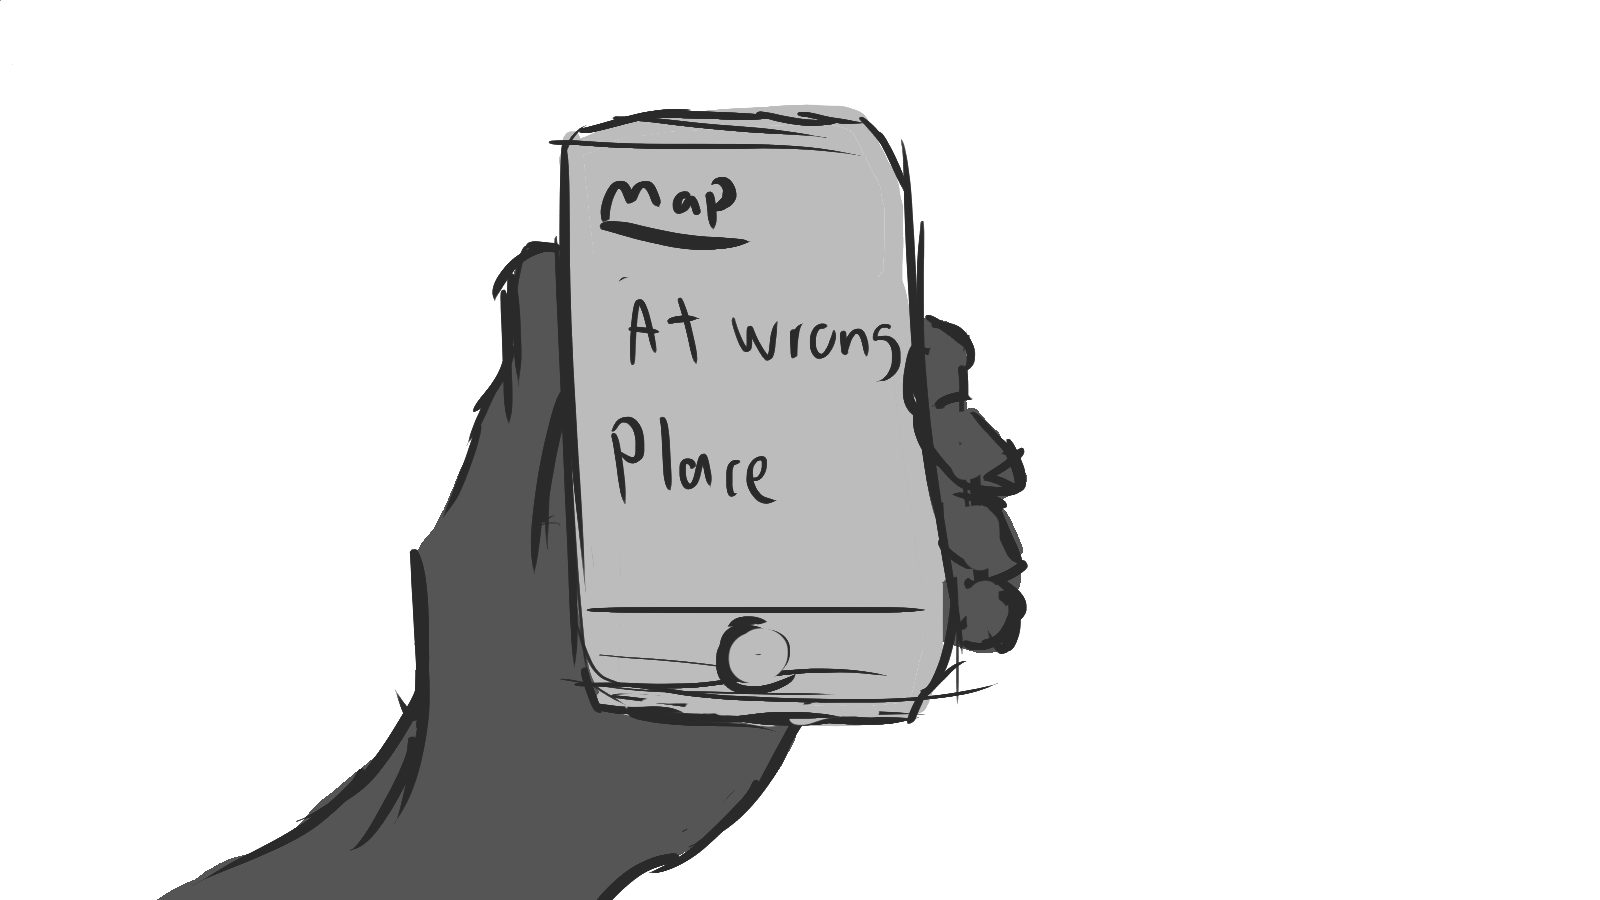 Map
At wrong
Place